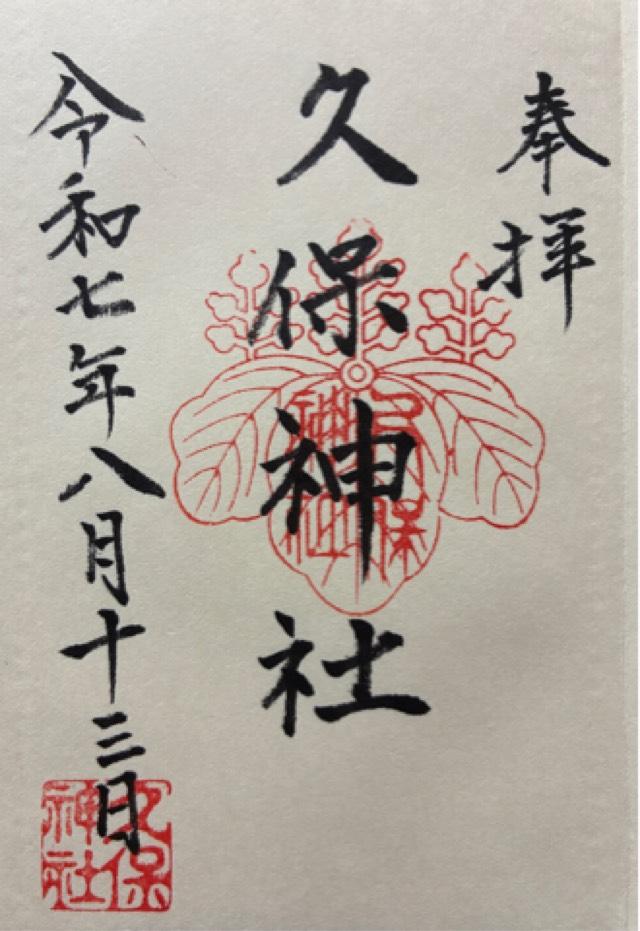 奉拝
久保神社
令和七年八月十三日
久保
神社
久保
神社